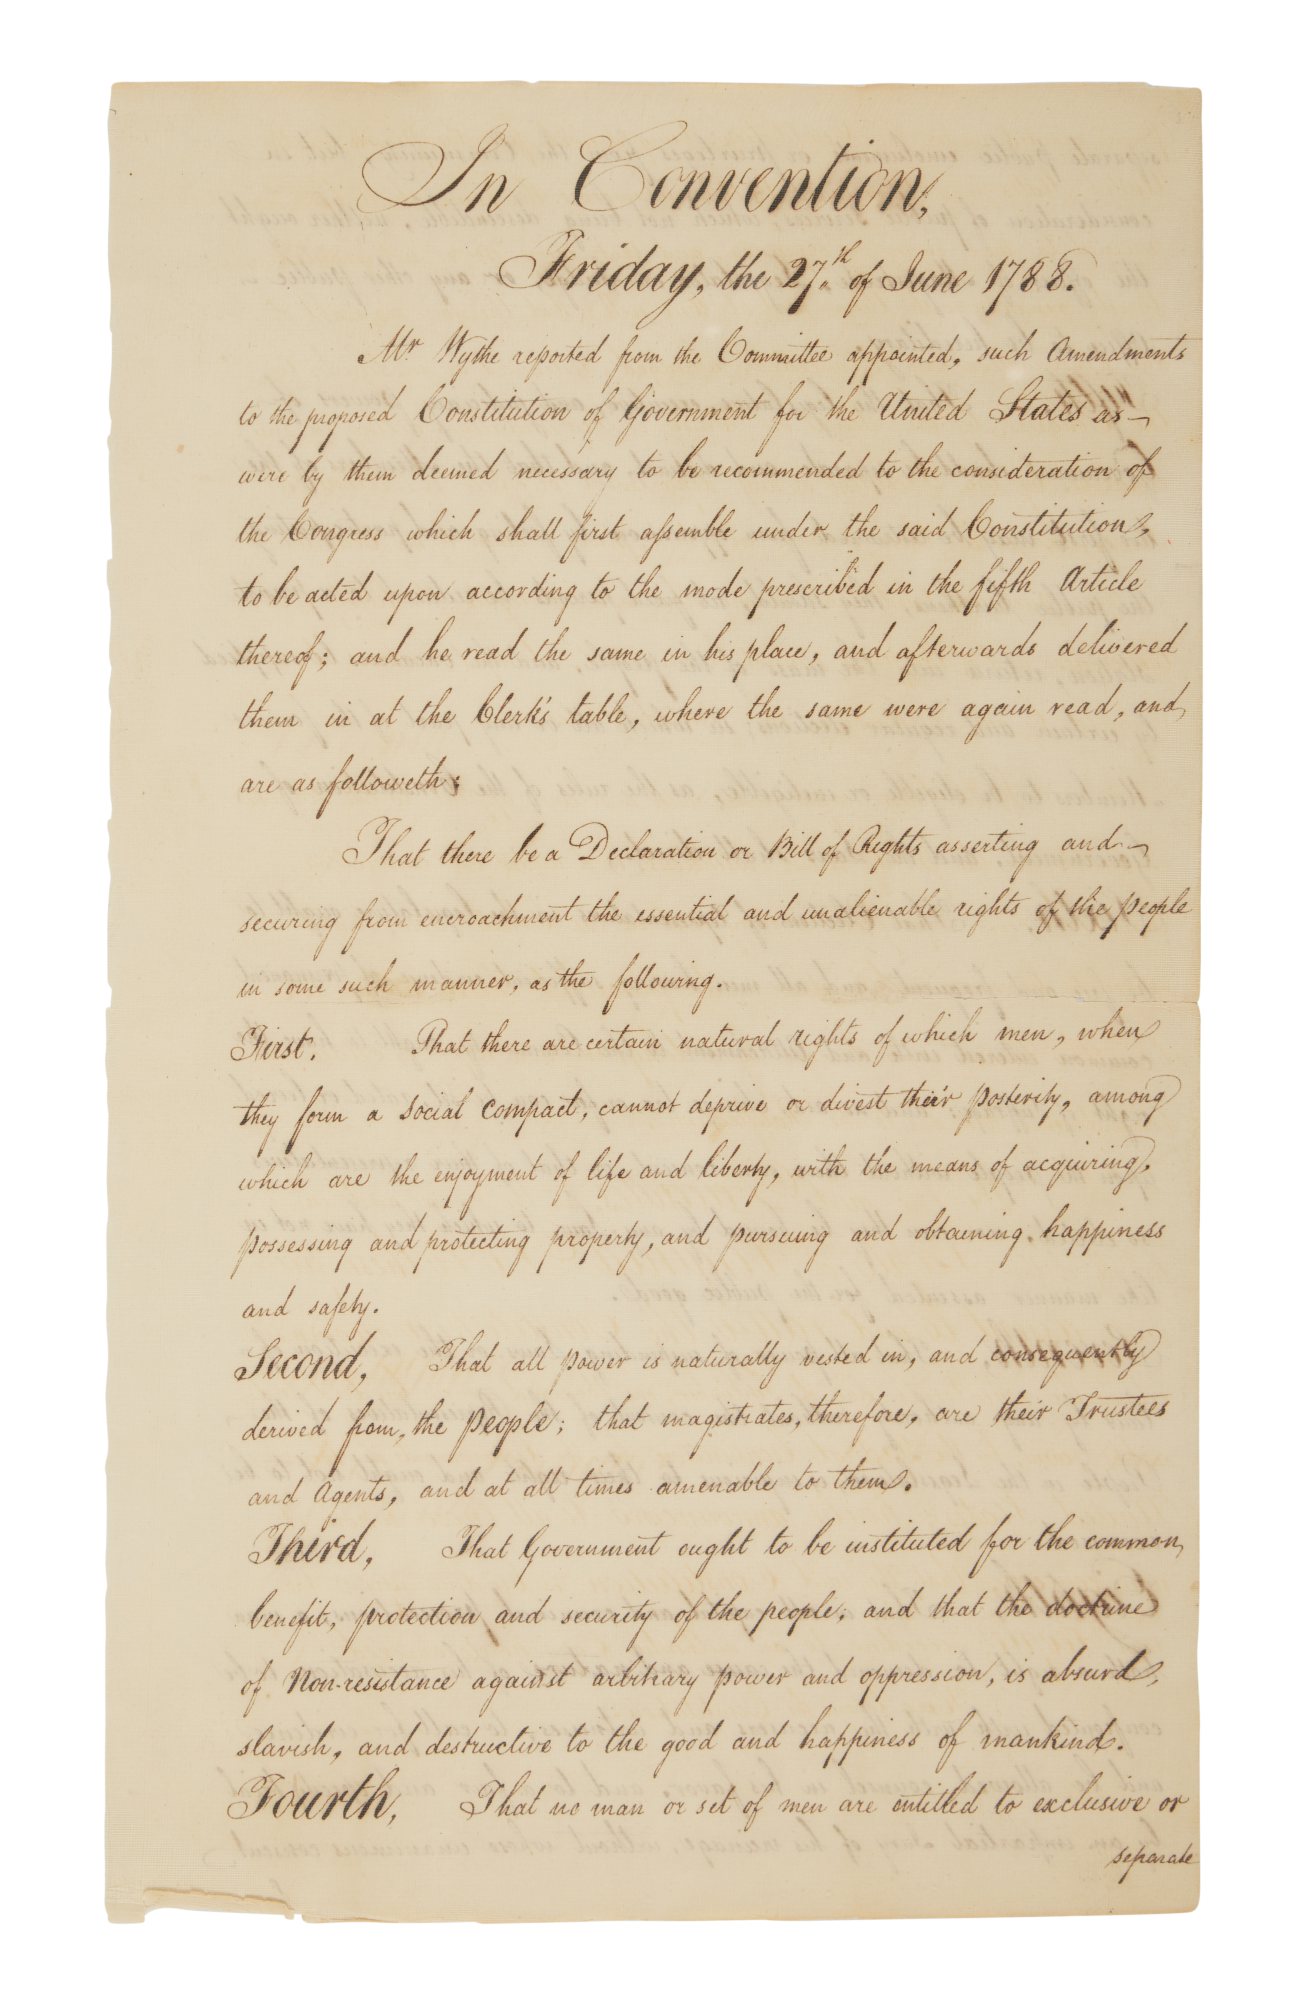 In Convention,
Friday, the 27th of June 1788.
Mr Wythe reported from the Committee appointed, such Amendments
to the proposed Constitution of Government for the United States as
were by them deemed necessary to be recommended to the consideration of
the Congress which shall first assemble under the said Constitution,
to be acted upon according to the mode prescribed in the fifth Article
thereof; and he read the same in his place, and afterwards delivered
them in at the Clerk's table, where the same were again read, and
are as followeth;
That there be a Declaration or Bill of Rights asserting and
securing from encroachment the essential and unalienable rights of the people
in some such manner, as the following.
First. That there are certain natural rights of which men, when
they form a social compact, cannot deprive or divest their posterity, among
which are the enjoyment of life and liberty, with the means of acquiring,
possessing and protecting property, and pursuing and obtaining happiness
and safety.
Second, That all power is naturally vested in, and consequently
derived from, the people; that magistrates, therefore, are their Trustees
and Agents, and at all times amenable to them.
Third, That Government ought to be instituted for the common
benefit, protection and security of the people; and that the doctrine
of Non-resistance against arbitrary power and oppression, is absurd,
slavish, and destructive to the good and happiness of mankind.
Fourth, That no man or set of men are entitled to exclusive or
separate